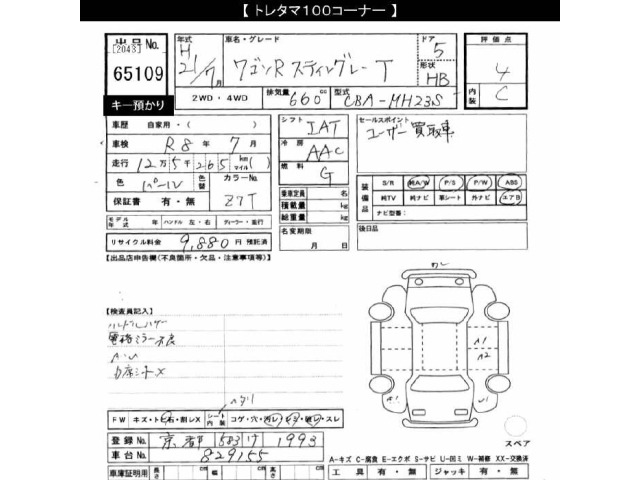 【 トレタマ100コーナー 】
出品No.
[2043]
65109
キー預かり
年式 H 21/7 月
車名・グレード
ワゴンR スティングレー T
ドア 5
形状 HB
評価点
4
内装 C
2WD・4WD
排気量 660 cc
型式 CBA-MH23S
車歴 自家用・( )
車検 R8 年 7 月
走行 12万5千265 km マイル ( )
色 パール
色替
カラーNo. Z7T
保証書 有・無
シフト IAT
冷房 AAC
燃料 G
セールスポイント
ユーザー買取車
乗車定員 名
積載量 kg
総重量 kg
装備品
S/R 純A/W P/S P/W ABS
純TV 純ナビ 革シート 外ナビ エアB
ナビ型番:
モデル年式 年 ハンドル 左・右 ディーラー・並行
リサイクル料金 9,880 円 預託済
名変期限 月 日
後日品
【出品店申告欄(不良箇所・欠品・注意事項等)】
【検査員記入】
電格ミラー不良
A1
A1
A2
FW キズ・トビ石・割レX
シート内装 コゲ・穴・汚レ・シミ・破レ・スレ
登録No. 京都 583 け 1993
車台No. 829155
スペア
A-キズ C-腐食 E-エクボ S-サビ U-凹ミ W-補修 XX-交換済
車庫証明用 長さ cm 幅 cm 高さ cm
工具 有・無 ジャッキ 有・無